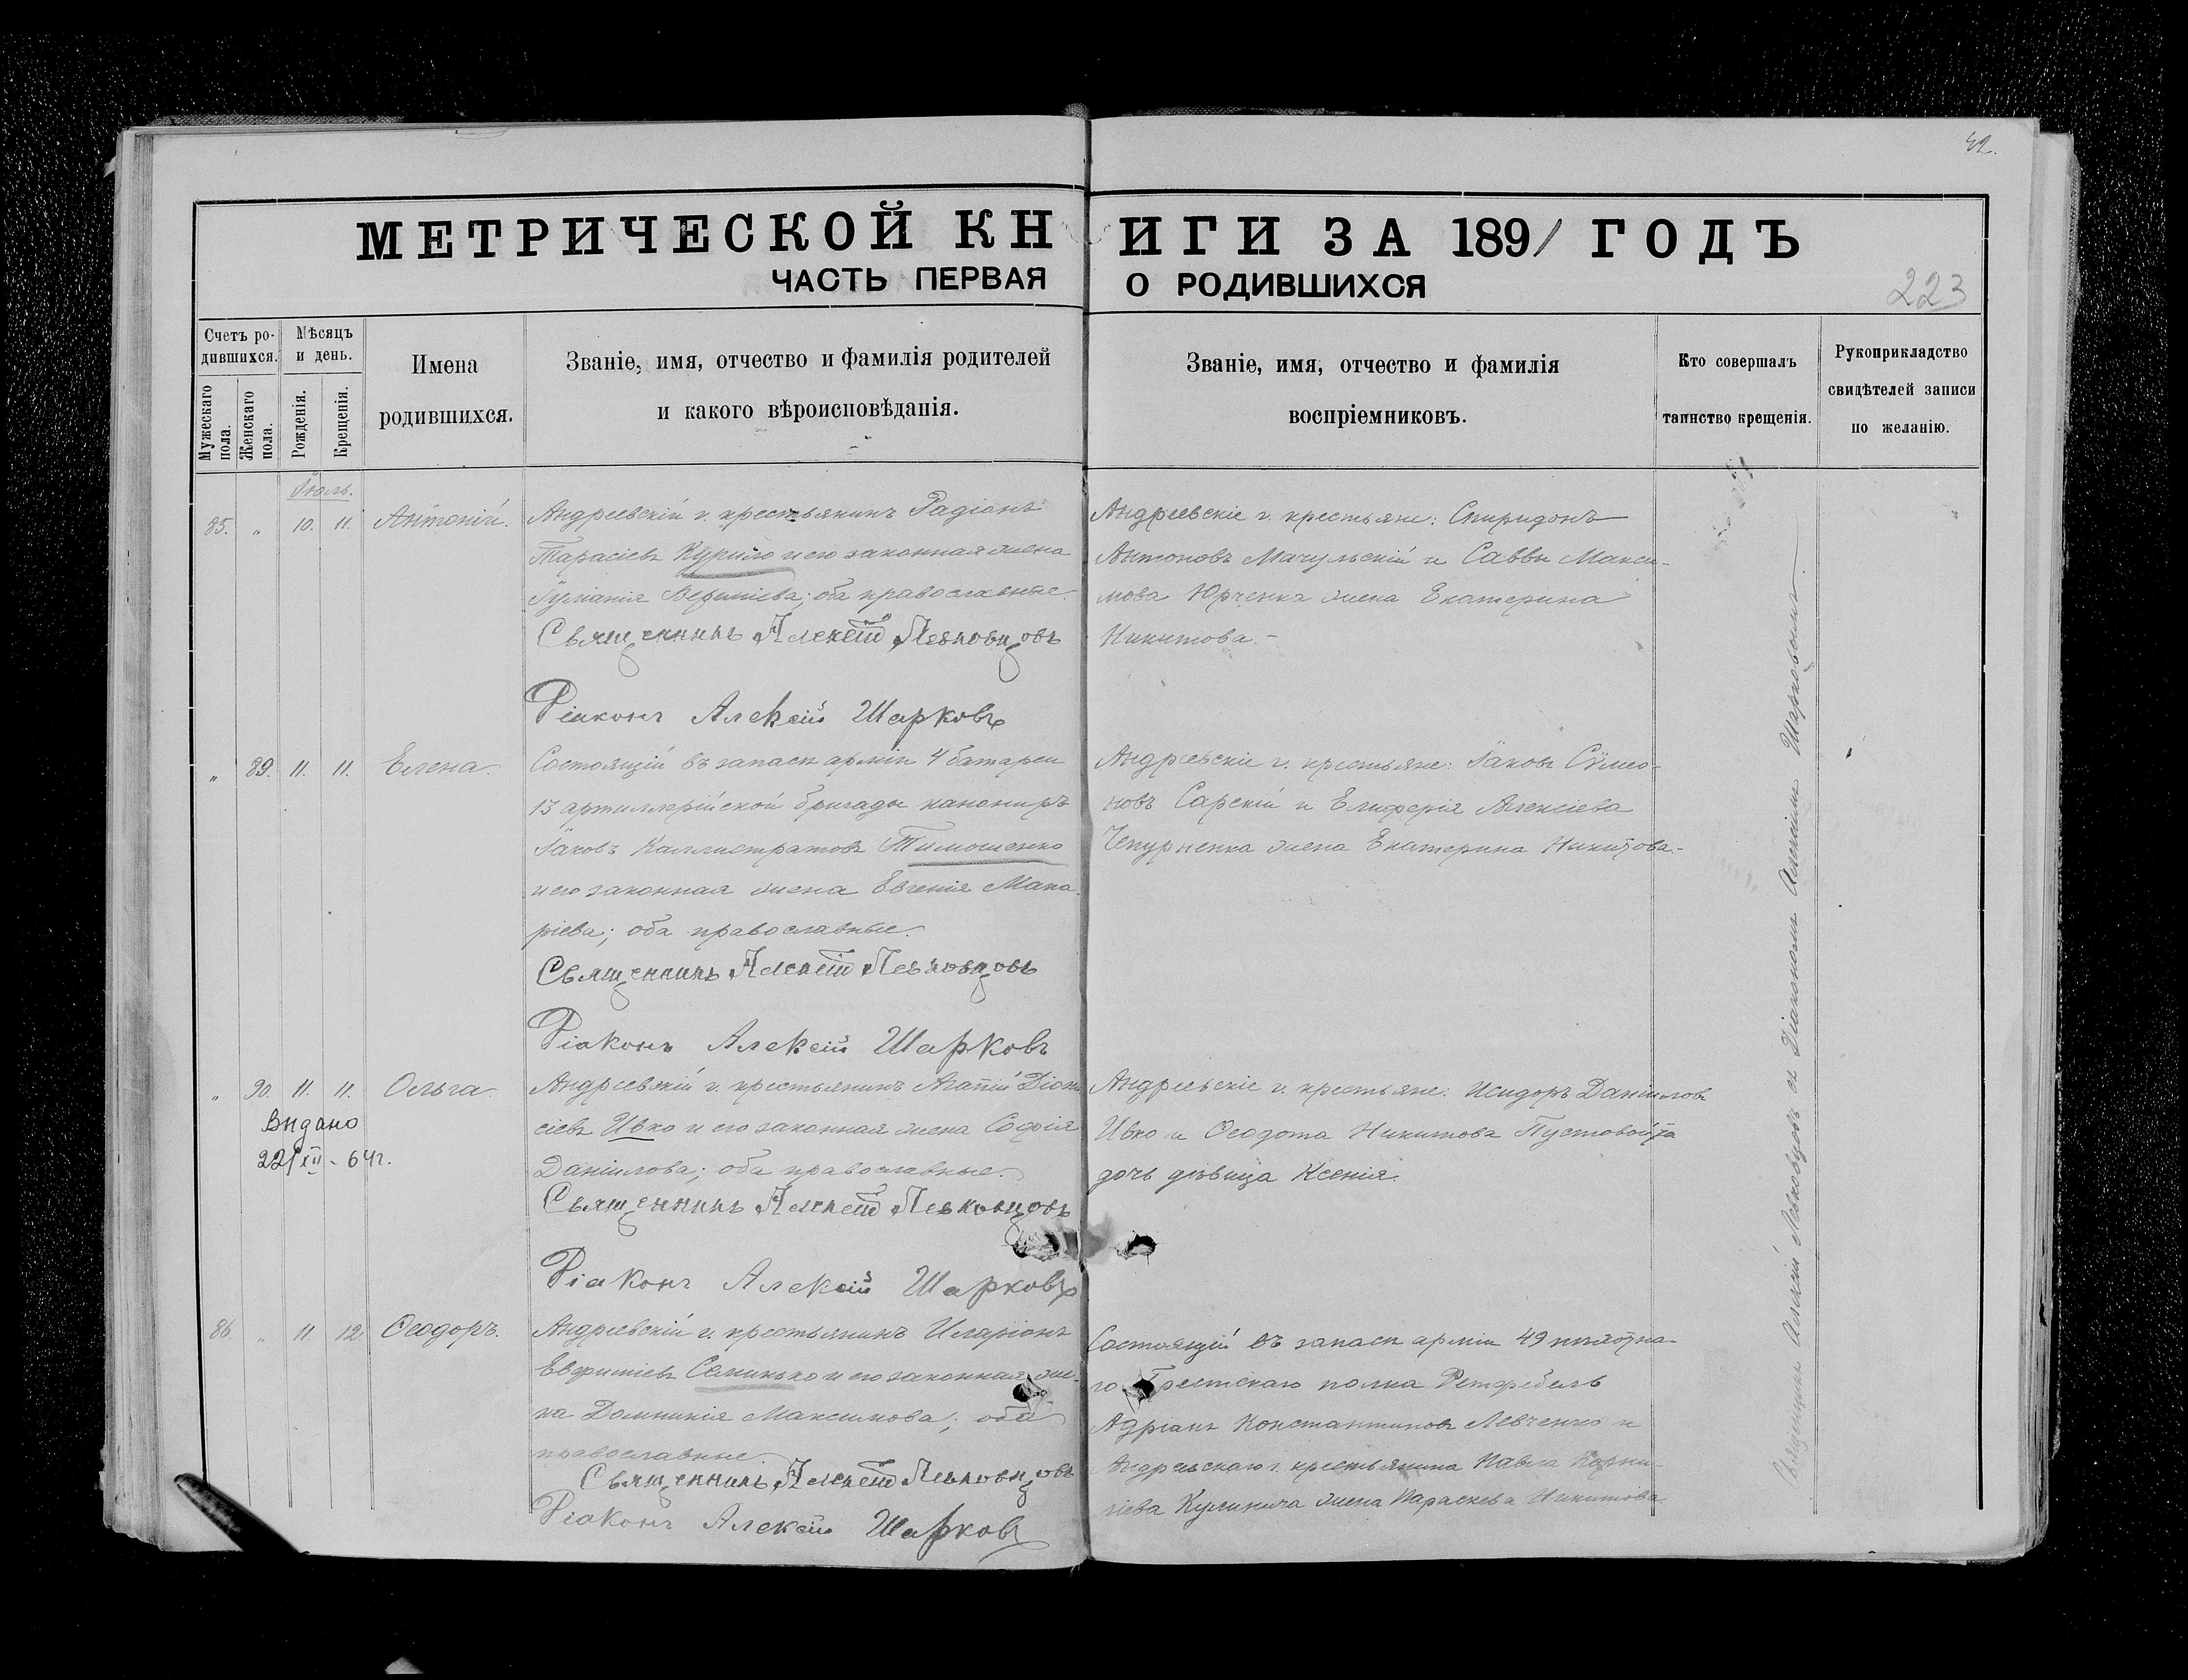 42.
МЕТРИЧЕСКОЙ КНИГИ ЗА 1891 ГОДЪ
ЧАСТЬ ПЕРВАЯ О РОДИВШИХСЯ
223
Счетъ родившихся.
Мужескаго пола.
Женскаго пола.
Мѣсяцъ и день.
Рожденія.
Крещенія.
Имена родившихся.
Званіе, имя, отчество и фамилія родителей
и какого вѣроисповѣданія.
Званіе, имя, отчество и фамилія
воспріемниковъ.
Кто совершалъ
таинство крещенія.
Рукоприкладство
свидѣтелей записи
по желанію.
Іюль.
85. " 10. 11. Антоній.
Андреевскій г. крестьянинъ Радіонъ
Тарасіевъ Курило и его законная жена
Іуліанія; оба православные.
Священникъ Алексѣй Левковцовъ
Діаконъ Алексѣй Шарковъ
Андреевскіе г. крестьяне: Спиридонъ
Антоновъ Мачульскій и Саввы Макси-
мова Юрченка жена Екатерина
Никитова.-
" 89. 11. 11. Елена.
Состоящій въ запасѣ арміи 4 батареи
13 артиллерійской бригады канониръ
Іаковъ Каллистратовъ Тимошенко
и его законная жена Евгенія Мака-
ріева; оба православные.
Священникъ Алексѣй Левковцовъ
Діаконъ Алексѣй Шарковъ
Андреевскіе г. крестьяне: Іаковъ Сѵмео-
новъ Сарскій и Елиферія Алексіева
Чепурненка жена Екатерина Никитова.-
" 90. 11. 11. Ольга.
Видано
22/XII - 64 г.
Андреевскій г. крестьянинъ Агапій Діони
сіевъ Ивко и его законная жена Софія
Даніилова; оба православные.
Священникъ Алексѣй Левковцовъ
Діаконъ Алексѣй Шарковъ
Андреевскіе г. крестьяне: Исидоръ Даніиловъ
Ивко и Ѳеодота Никитова Пустовойта
дочь дѣвица Ксенія.
86 " 11. 12. Ѳеодоръ.
Андреевскій г. крестьянинъ Иларіонъ
Евфиміевъ Семинько и его законная же-
на Домникія Максимова; оба
православные.
Священникъ Алексѣй Левковцовъ
Діаконъ Алексѣй Шарковъ
Состоящій въ запасѣ арміи 49 пѣхотна-
го Брестскаго полка Фельдфебель
Адріанъ Константиновъ Левченко и
Андреевскаго г. крестьянина Павла Корни-
ліева Кулинича жена Параскева Никитова.
Священникъ Алексѣй Левковцовъ съ Діакономъ Алексѣемъ Шарковымъ.